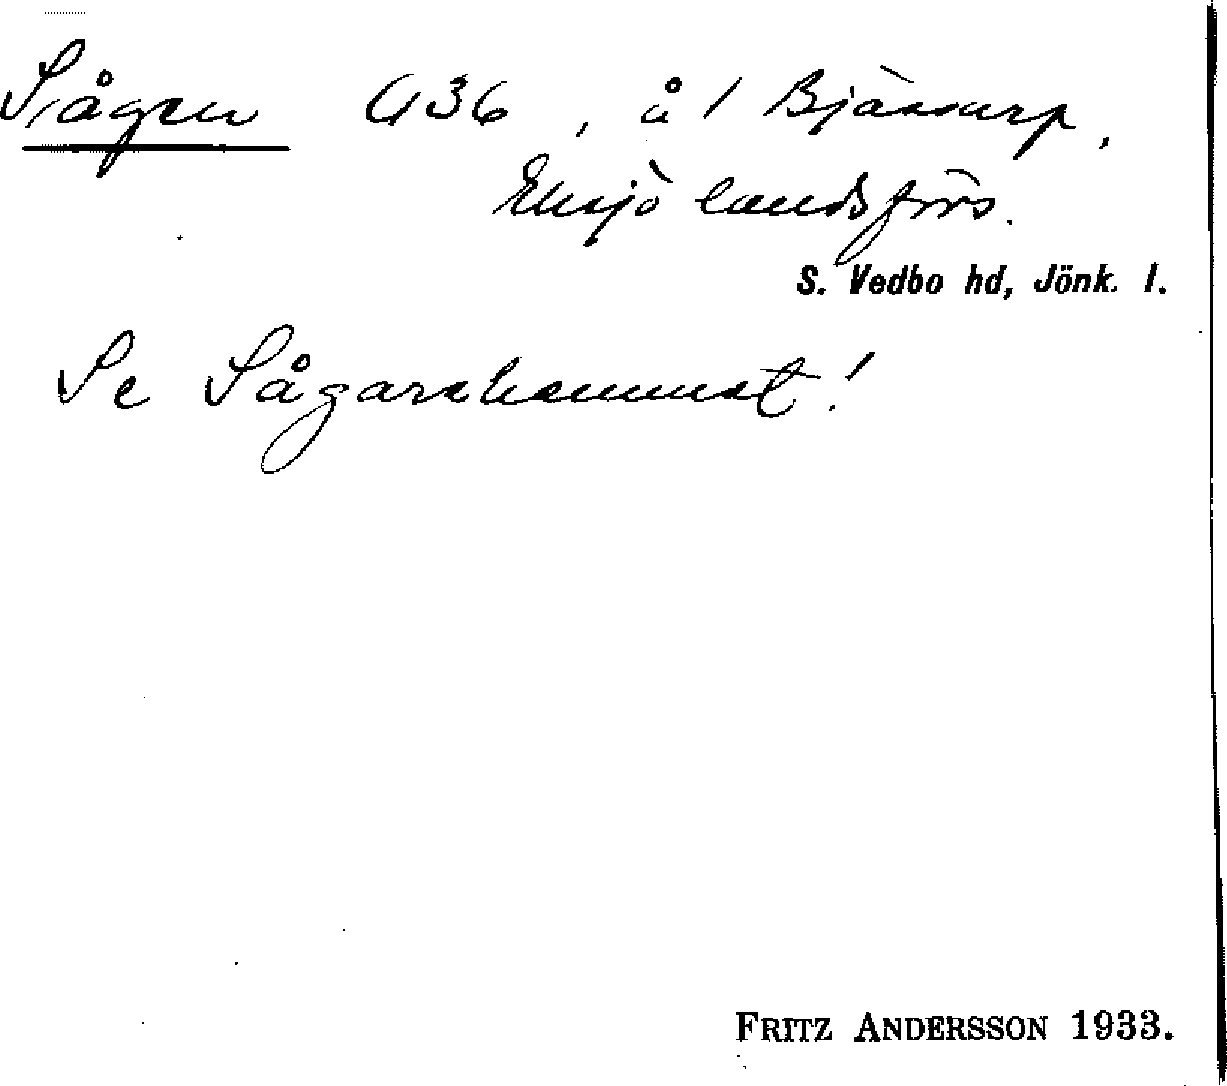 Sågen 436, å 1 Bjässarp,
Eksjö landsförs.
S. Vedbo hd, Jönk. l.
Se Sågarehemmet!
FRITZ ANDERSSON 1933.